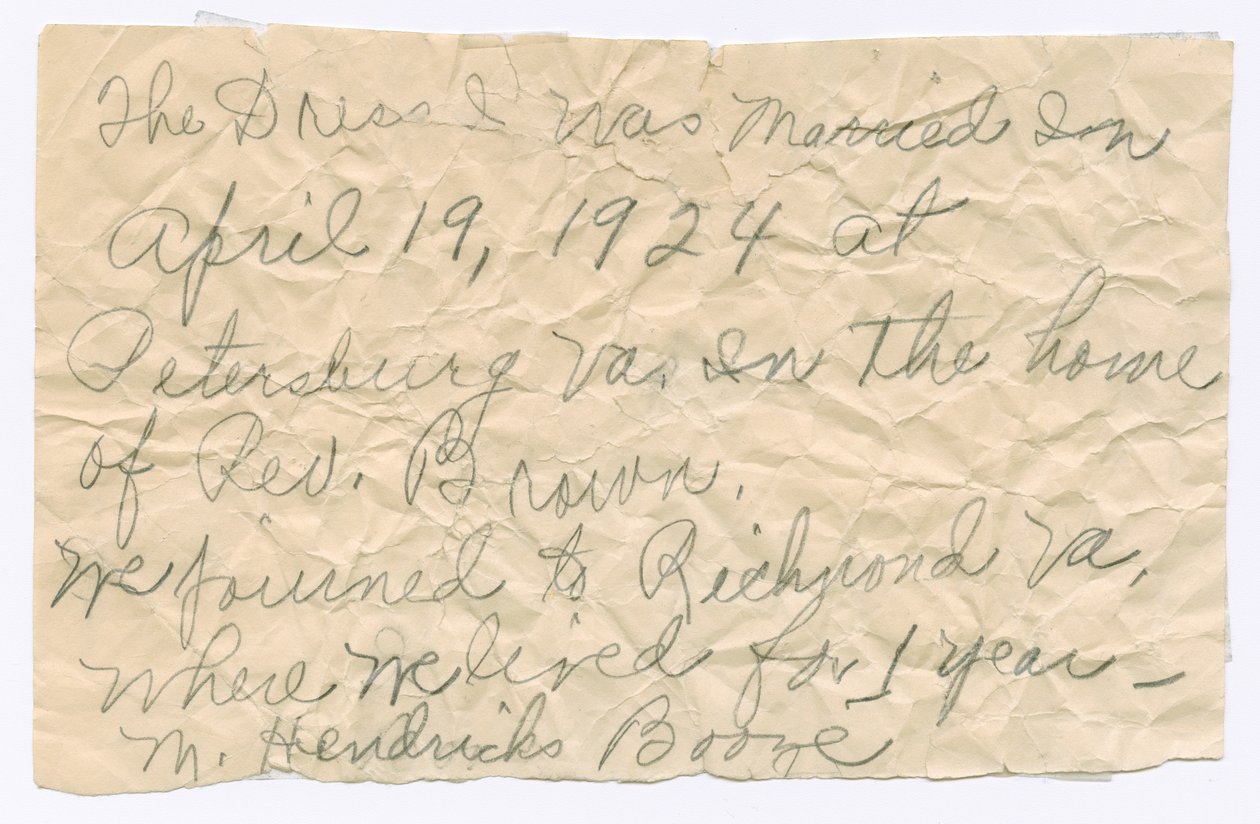 The Dress I was Married In
April 19, 1924 at
Petersburg Va. In the home
of Rev. Brown.
We journed to Richmond Va,
where we lived for 1 year –
M. Hendricks Boone